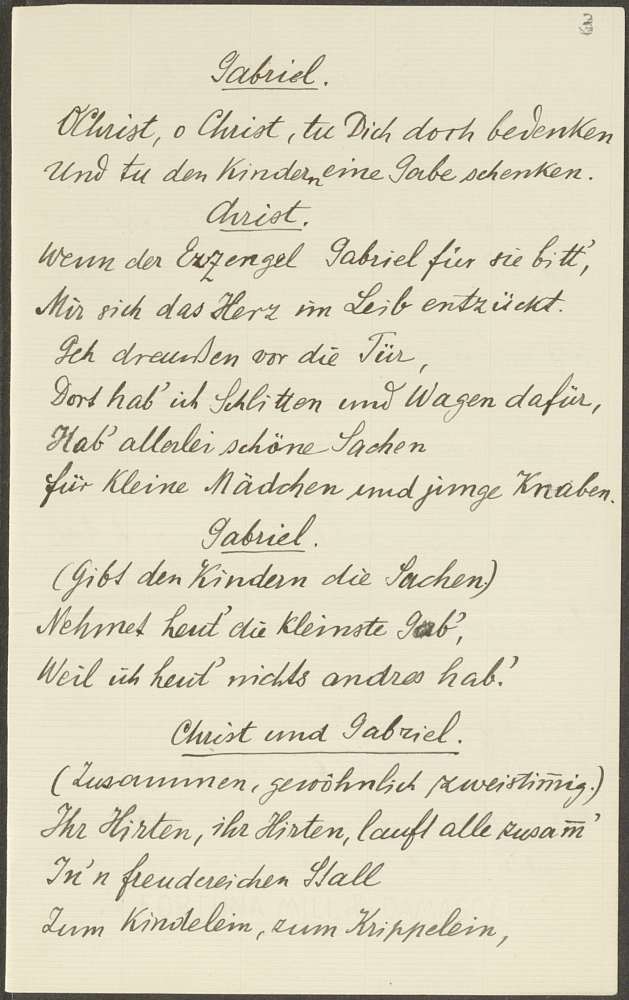 Gabriel.
O Christ, o Christ, tu Dich doch bedenken
Und tu den Kindern eine Gabe schenken.
Christ.
Wenn der Erzengel Gabriel für sie bitt',
Mir sich das Herz im Leib entzückt.
Geh draußen vor die Tür,
Dort hab' ich Schlitten und Wagen dafür,
Hab' allerlei schöne Sachen
für kleine Mädchen und junge Knaben.
Gabriel.
(Gibt den Kindern die Sachen.)
Nehmet heut' die kleinste Gab',
Weil ich heut' nichts andres hab'.
Christ und Gabriel.
(Zusammen, gewöhnlich zweistim̄ig.)
Ihr Hirten, ihr Hirten, lauft alle zusam̄'
In'n freudereichen Stall
Zum Kindelein, zum Krippelein,